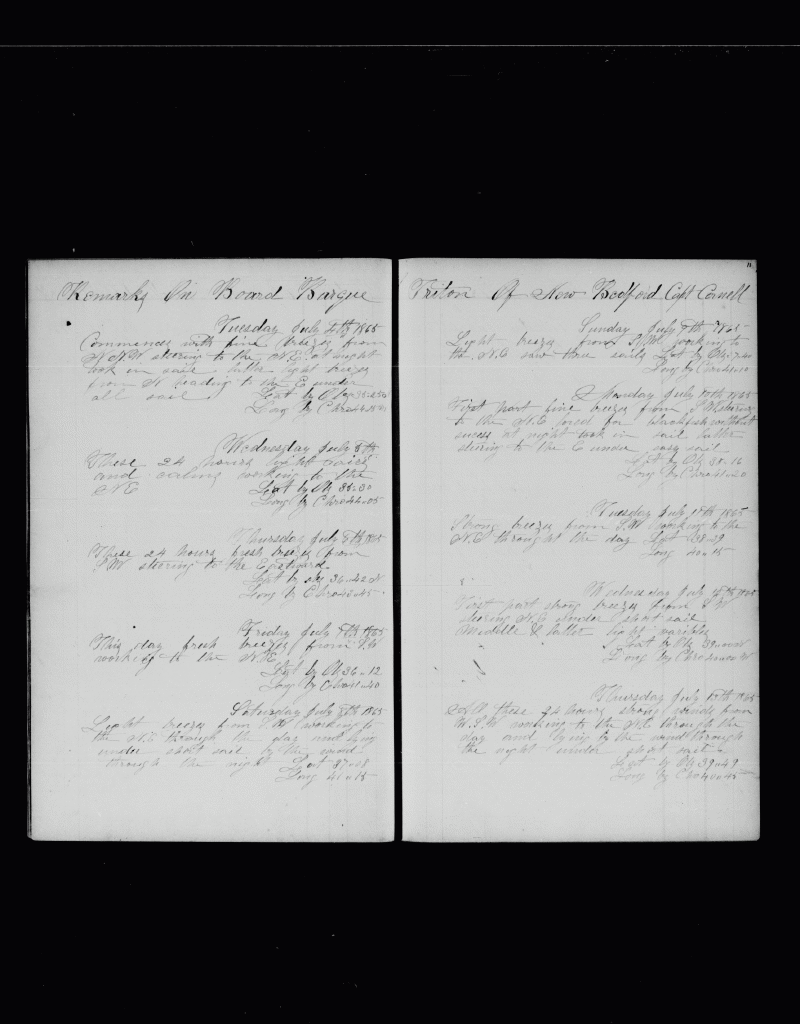 Remarks On Board Barque
Tuesday July 4th 1865
Commences with fine breezes from
NNW steering to the NE at night
took in sail latter light breezes
from N heading to the E under
all sail Lat by Ob
Long by Chro
Wednesday July 5th
These 24 hours light airs
and calms working to the
NE Lat by Ob 35=30
Long by Chro 44=05
Thursday July 6th 1865
These 24 hours fresh breezes from
SW steering to the Eastward
Lat by Ob 36=42 N
Long by Chro 43=45
Friday July 7th 1865
This day fresh breezes from SW
working to the NE
Lat by Ob 36=12
Long by Chro 41=40
Saturday July 8th 1865
Light breezes from SW working to
the NE through the day and lying
under short sail by the wind
through the night Lat 37=08
Long 41=15
11
Triton Of New Bedford Capt Cornell
Sunday July 9th 1865
Light breezes from working to
the NE saw three sails Lat by Ob 37=40
Long by Chro 41=10
Monday July 10th 1865
First part fine breezes from SW steering
to the NE lowered for blackfish without
success at night took in sail latter
steering to the E under easy sail
Lat by Ob 38=16
Long by Chro 41=20
Tuesday July 11th 1865
Strong breezes from SW working to the
NE throught the day Lat 38=39
Long 40=15
Wednesday July 12th 1865
First part strong breezes from SW
steering NE under short sail
Middle & latter light varibles
Lat by Ob 39=00 N
Long by Chro
Thursday July 13th 1865
All these 24 hours strong winds from
WSW working to the NE through the
day and lying by the wind through
the night under short sail
Lat by Ob 39=49
Long by Chro 40=45